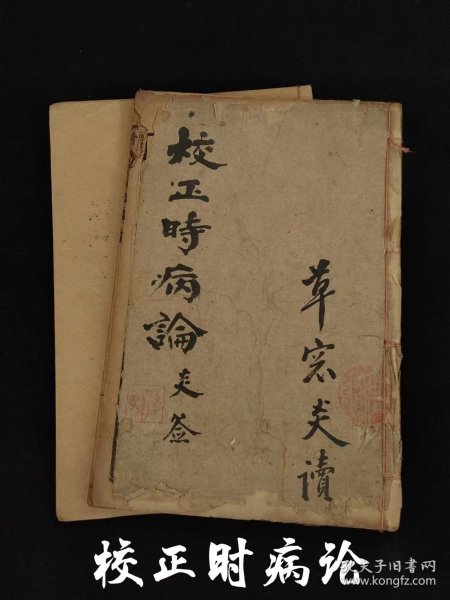 校正時病論 炎签
草窓炎讀
校正时病论
孔夫子旧书网
www.kongfz.com